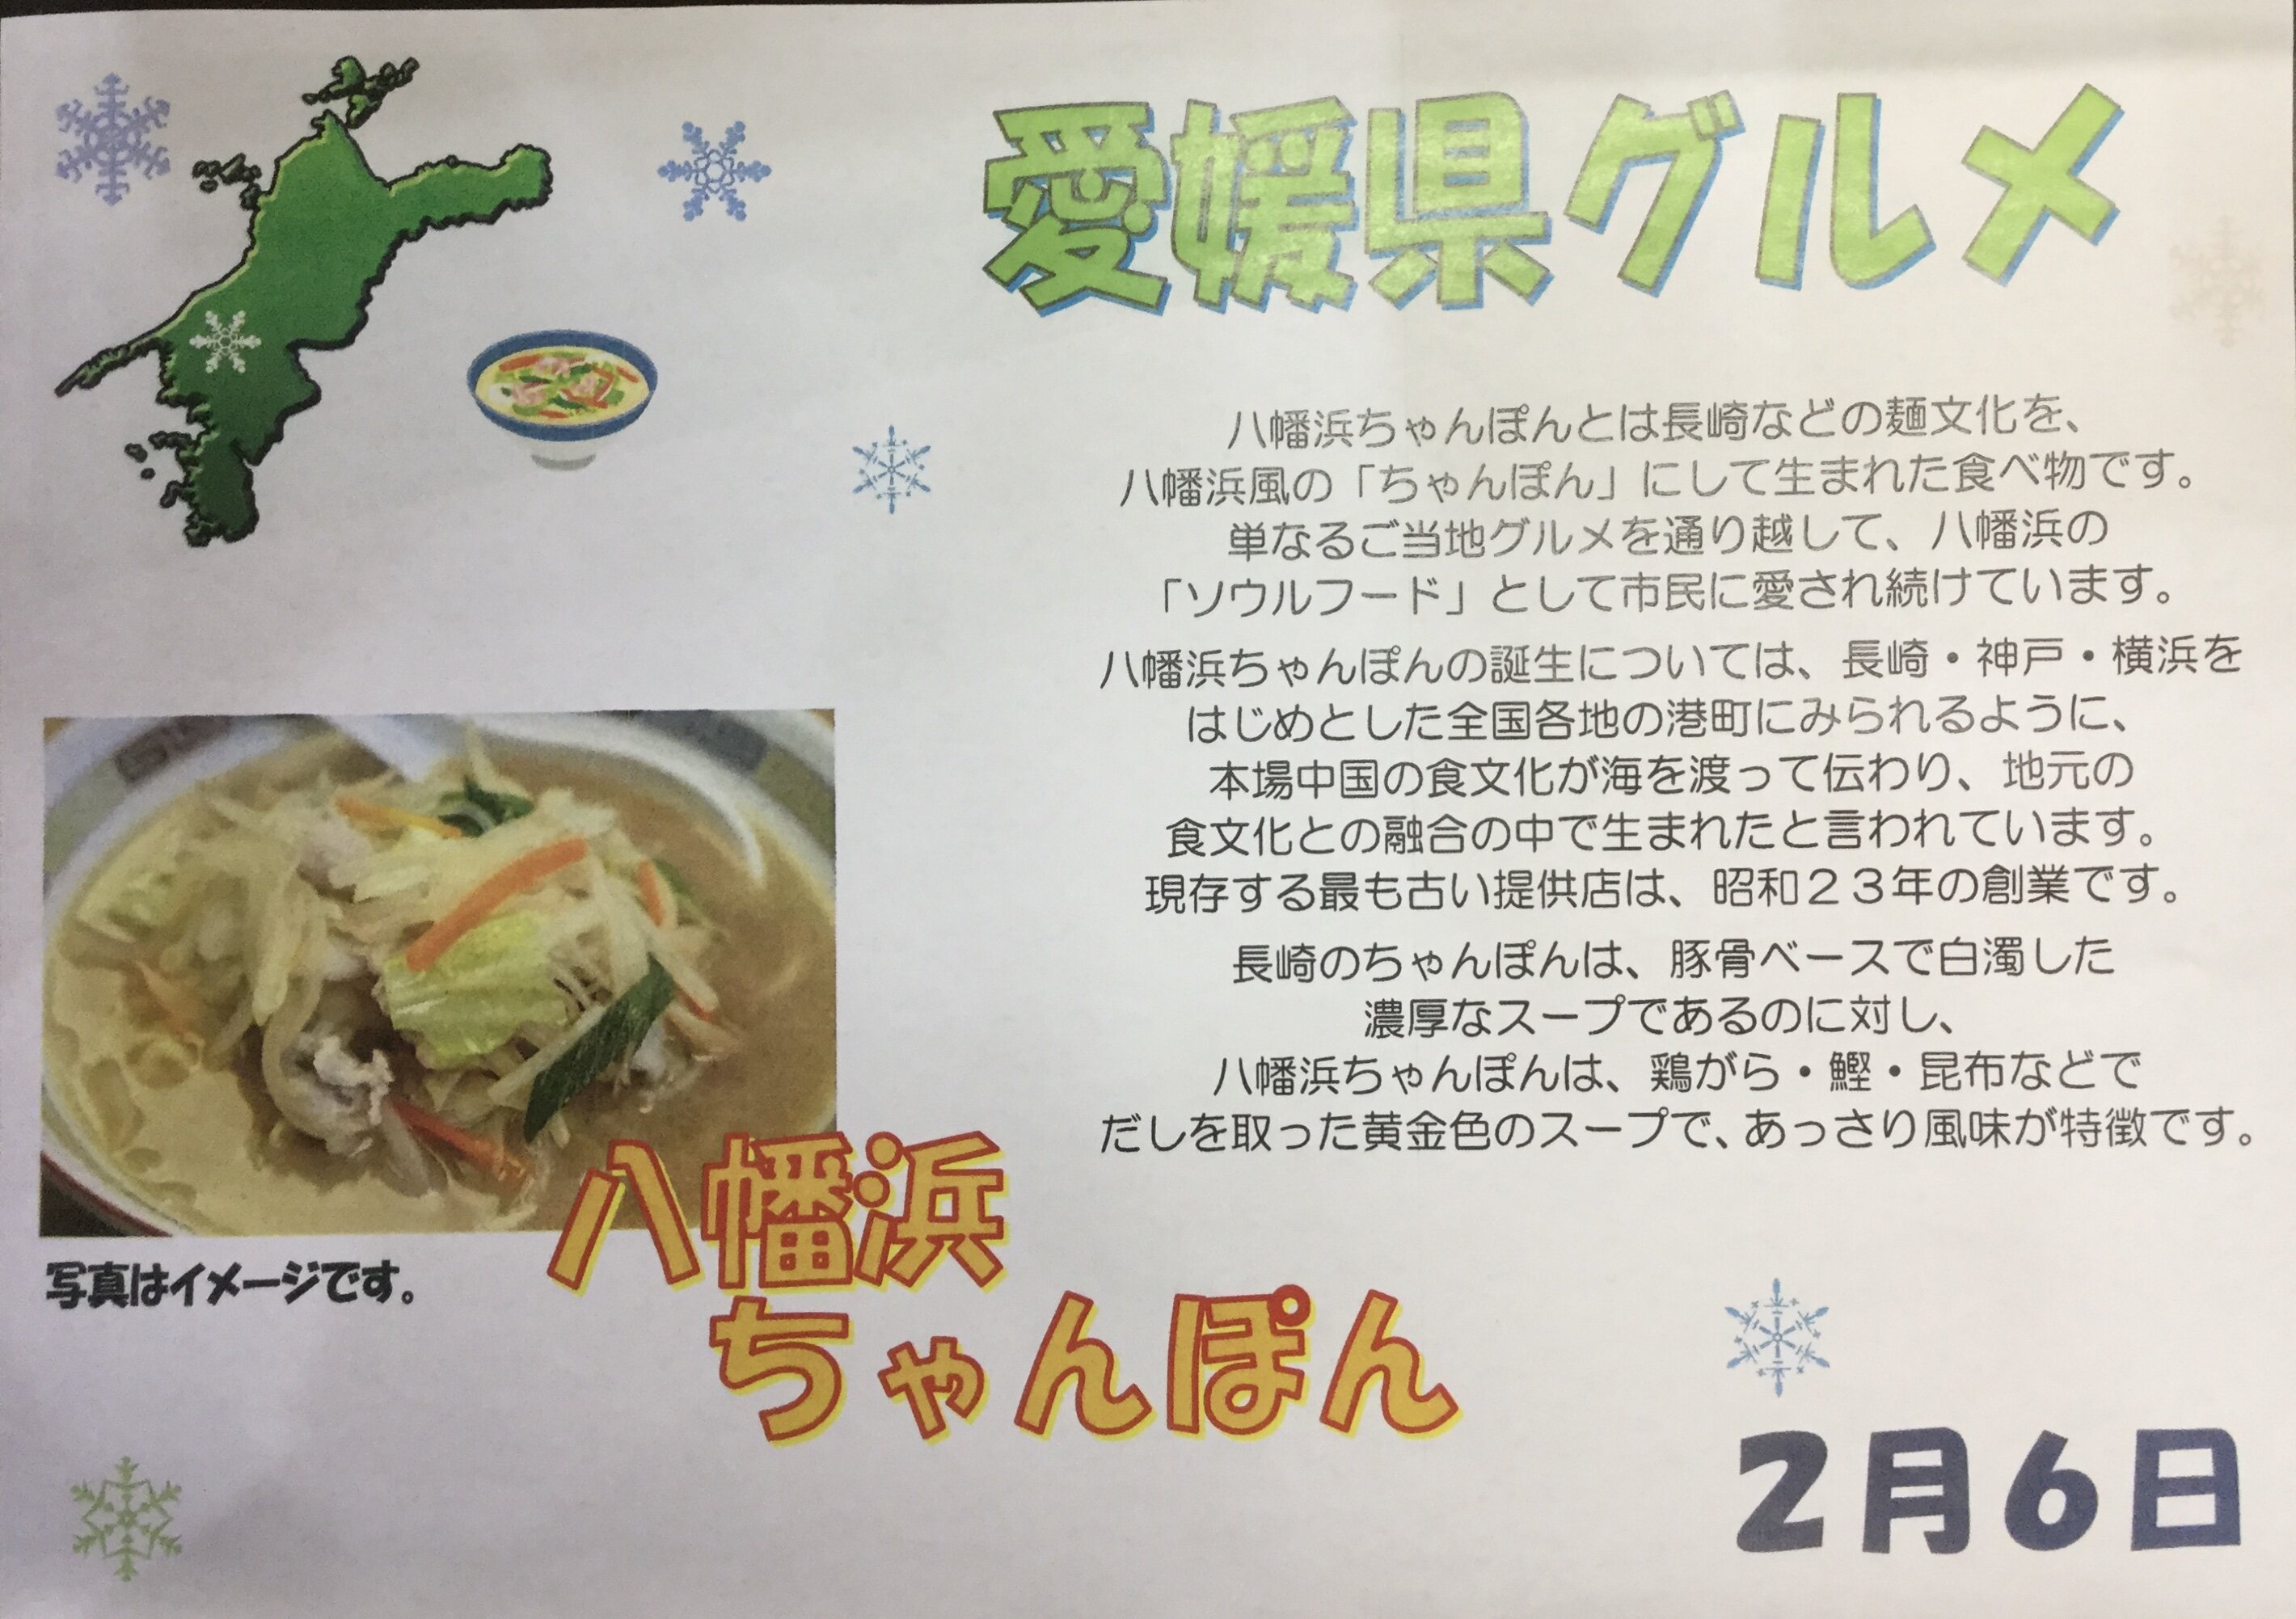 愛媛県グルメ
八幡浜ちゃんぽんとは長崎などの麺文化を、
八幡浜風の「ちゃんぽん」にして生まれた食べ物です。
単なるご当地グルメを通り越して、八幡浜の
「ソウルフード」として市民に愛され続けています。
八幡浜ちゃんぽんの誕生については、長崎・神戸・横浜を
はじめとした全国各地の港町にみられるように、
本場中国の食文化が海を渡って伝わり、地元の
食文化との融合の中で生まれたと言われています。
現存する最も古い提供店は、昭和２３年の創業です。
長崎のちゃんぽんは、豚骨ベースで白濁した
濃厚なスープであるのに対し、
八幡浜ちゃんぽんは、鶏がら・鰹・昆布などで
だしを取った黄金色のスープで、あっさり風味が特徴です。
八幡浜
ちゃんぽん
写真はイメージです。
2月6日